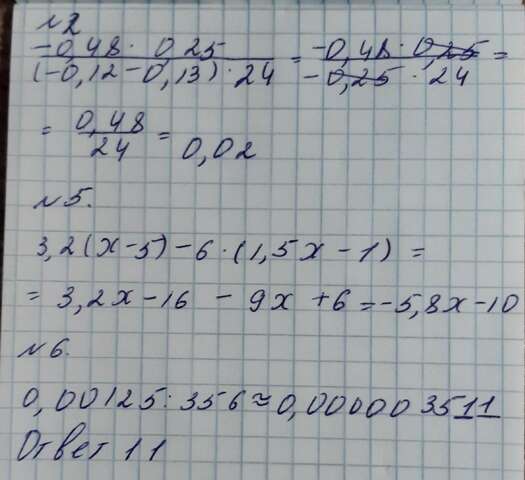 №2
-0,48 · 0,25 / (-0,12 - 0,13) · 24 = -0,48 · 0,25 / -0,25 · 24 =
= 0,48 / 24 = 0,02
№5.
3,2(x-5) - 6 · (1,5x - 1) =
= 3,2x - 16 - 9x + 6 = -5,8x - 10
№6.
0,00125 : 356 ≈ 0,000003511
Ответ 11